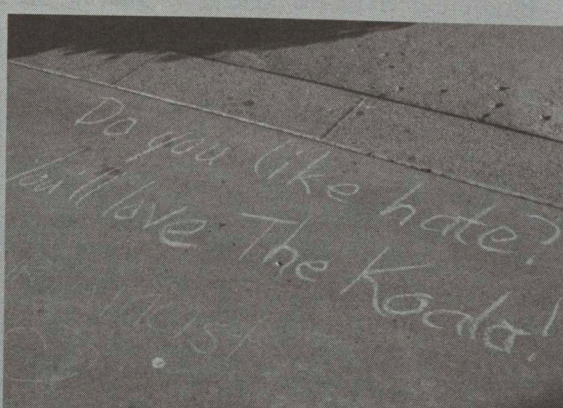 Do you like hate?
You'll love The Koala!